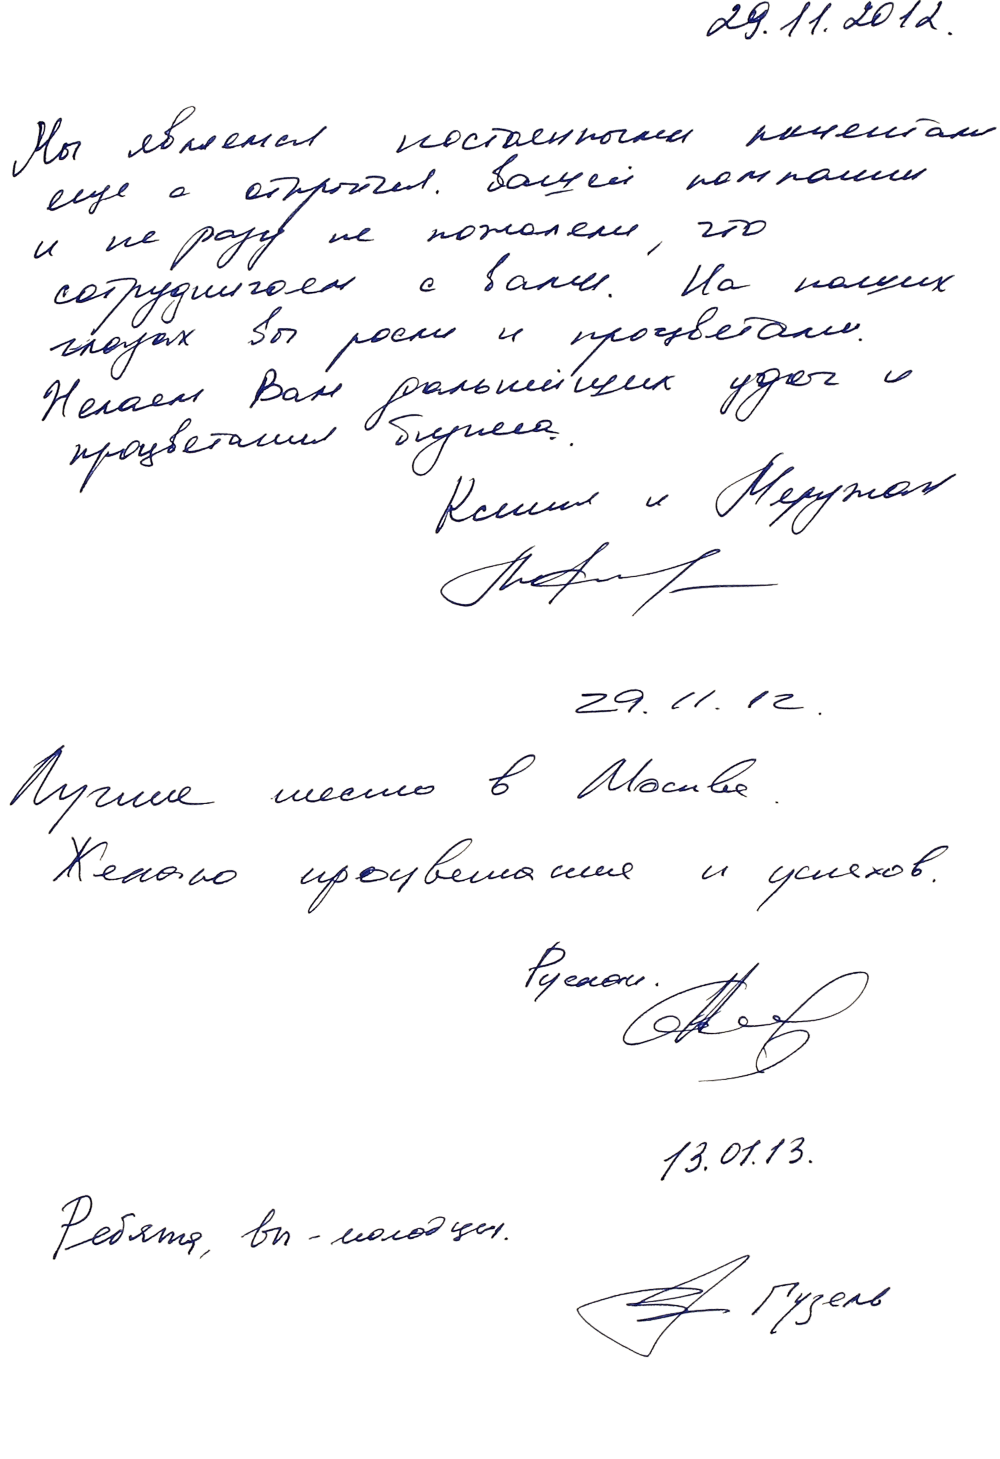 29.11.2012.
Мы являемся постоянными клиентами
еще с открытия Вашей компании
и не разу не пожалели, что
сотрудничаем с Вами. На наших
глазах Вы росли и процветали.
Желаем Вам дальнейших удач и
процветания бизнеса.
Ксения и Меружан
29.11.12.
Лучшее место в Москве.
Желаю процветания и успехов.
Руслан.
13.01.13.
Ребята, вы - молодцы.
Гузель